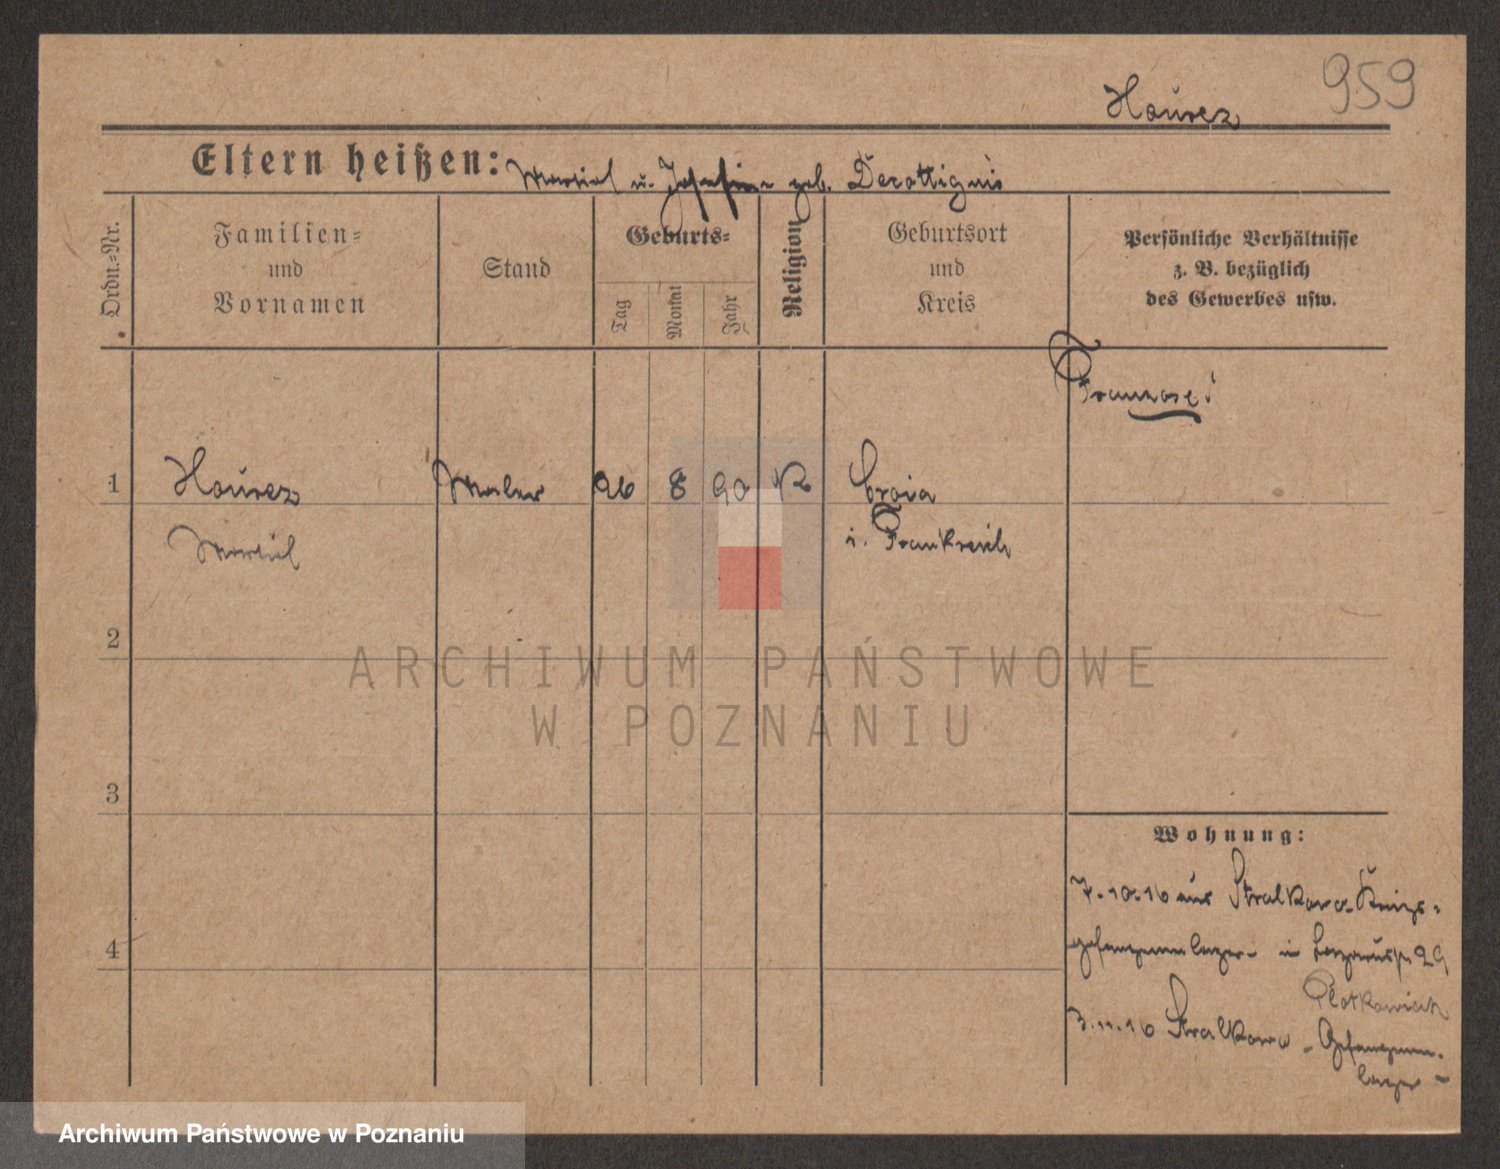 959
Hourez
Eltern heißen: Martial u. Josefine geb. Derottignis
Ordn.-Nr.
Familien-
und
Vornamen
Stand
Geburts-
Tag
Monat
Jahr
Religion
Geburtsort
und
Kreis
Persönliche Verhältnisse
z. B. bezüglich
des Gewerbes usw.
Franzose!
1 Hourez Maler 26 8 90 K Croix
Martial i. Frankreich
2
3
4
Wohnung:
7.10.16 aus Stralkowo Kriegs-
gefangenenlager in Lazarusstr. 29
Piotkowiak
3.11.16 Stralkowo - Gefangenen-
lager -
ARCHIWUM PAŃSTWOWE
W POZNANIU
Archiwum Państwowe w Poznaniu